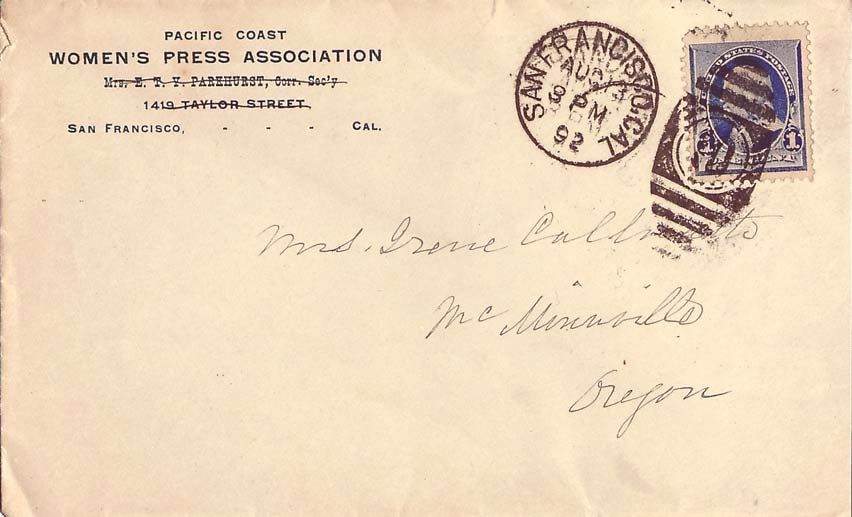 PACIFIC COAST
WOMEN'S PRESS ASSOCIATION
Mrs. E. T. Y. PARKHURST, Corr. Sec'y
1419 TAYLOR STREET,
SAN FRANCISCO, - - - CAL.
SAN FRANCISCO, CAL.
AUG
PM
92
U STATES POSTAGE
1 1
Mrs. Irene
McMinnville
Oregon